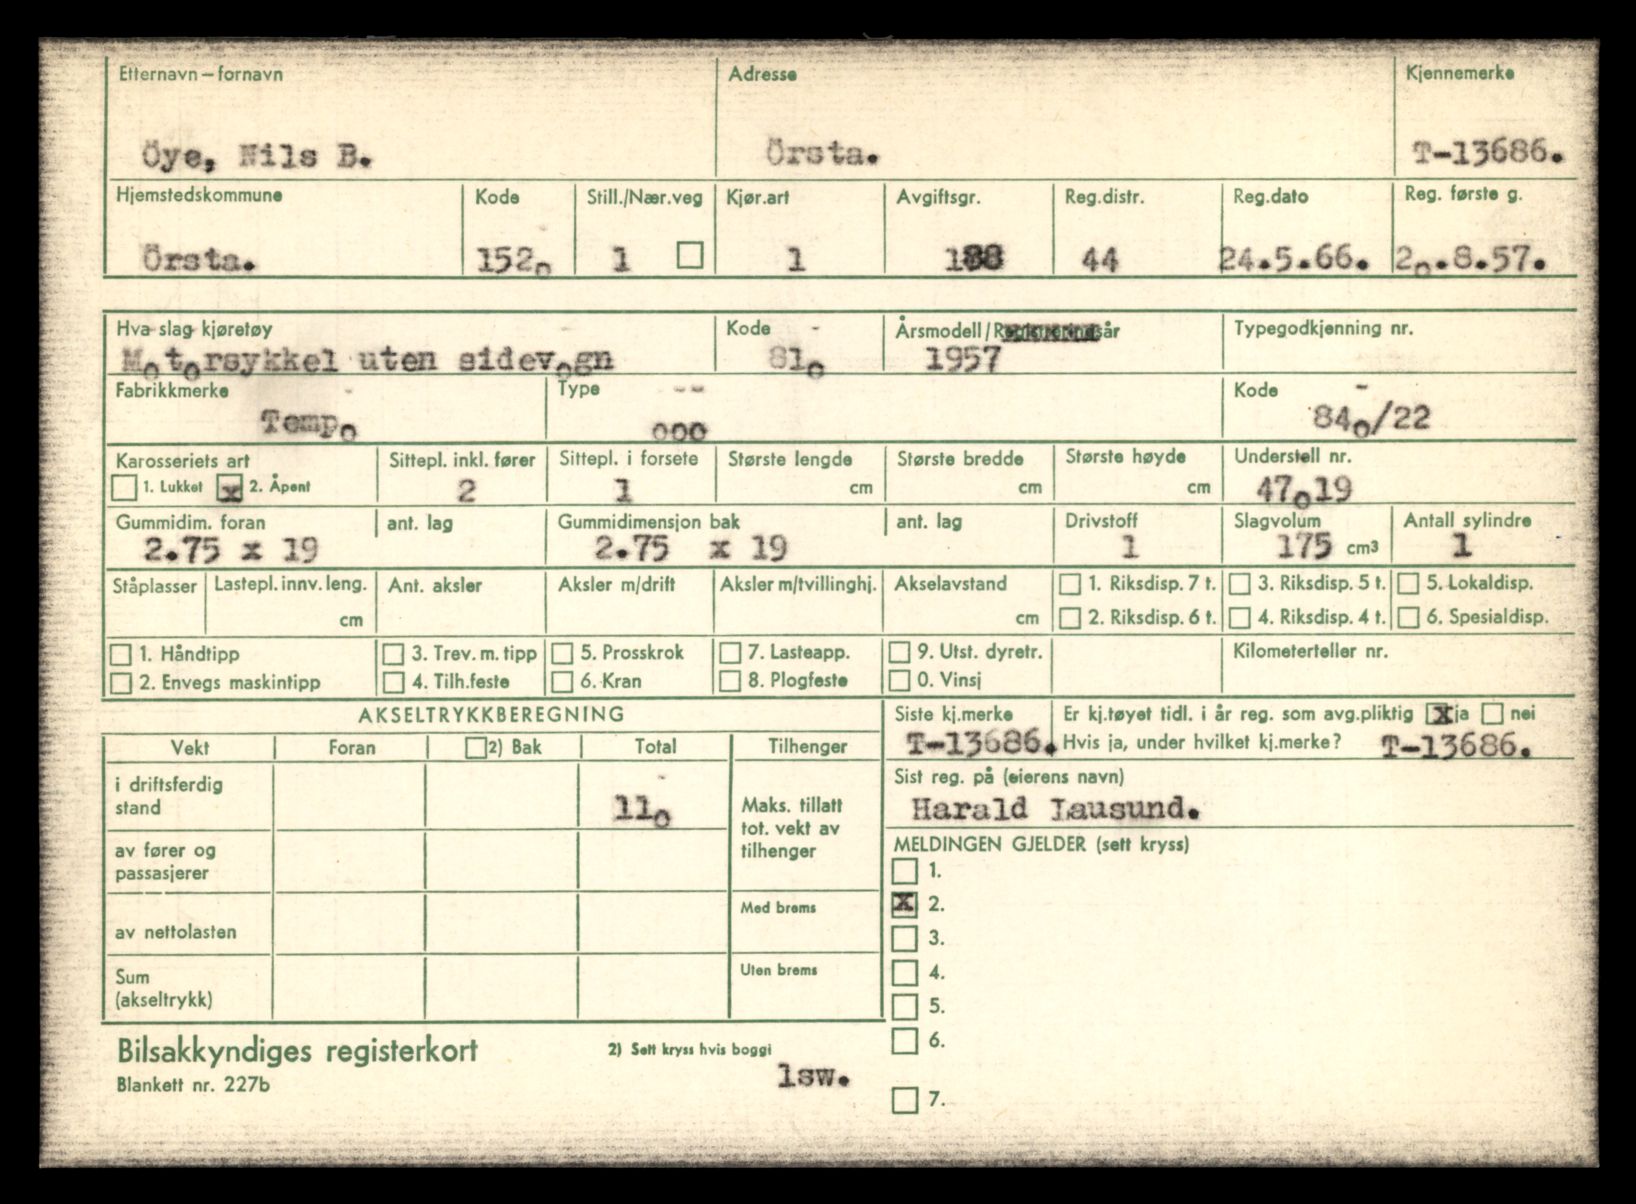 Etternavn – fornavn Adresse Kjennemerke
Öye, Nils B. Örsta. T-13686.
Hjemstedskommune Kode Still./Nær.veg Kjør.art Avgiftsgr. Reg.distr. Reg.dato Reg. første g.
Örsta. 1520 1 1 188 44 24.5.66. 20.8.57.
Hva slag kjøretøy Kode Årsmodell/Registreringsår Typegodkjenning nr.
Motorsykkel uten sidevogn 810 1957
Fabrikkmerke Type Kode
Tempo 000 840/22
Karosseriets art Sittepl. inkl. fører Sittepl. i forsete Største lengde Største bredde Største høyde Understell nr.
1. Lukket x 2. Åpent 2 1 cm cm cm 47019
Gummidim. foran ant. lag Gummidimensjon bak ant. lag Drivstoff Slagvolum Antall sylindre
2.75 x 19 2.75 x 19 1 175 cm3 1
Ståplasser Lastepl. innv. leng. Ant. aksler Aksler m/drift Aksler m/tvillinghj. Akselavstand 1. Riksdisp. 7 t. 3. Riksdisp. 5 t. 5. Lokaldisp.
cm cm 2. Riksdisp. 6 t. 4. Riksdisp. 4 t. 6. Spesialdisp.
1. Håndtipp 3. Trev. m. tipp 5. Prosskrok 7. Lasteapp. 9. Utst. dyretr. Kilometerteller nr.
2. Envegs maskintipp 4. Tilh.feste 6. Kran 8. Plogfeste 0. Vinsj
AKSELTRYKKBEREGNING
Vekt Foran 2) Bak Total Tilhenger
i driftsferdig
stand 110
Maks. tillatt
tot. vekt av
tilhenger
av fører og
passasjerer
Med brems
av nettolasten
Uten brems
Sum
(akseltrykk)
Siste kj.merke Er kj.tøyet tidl. i år reg. som avg.pliktig x ja nei
T-13686. Hvis ja, under hvilket kj.merke? T-13686.
Sist reg. på (eierens navn)
Harald Lausund.
MELDINGEN GJELDER (sett kryss)
1.
x 2.
3.
4.
5.
6.
7.
Bilsakkyndiges registerkort 2) Sett kryss hvis boggi
lsw.
Blankett nr. 227b